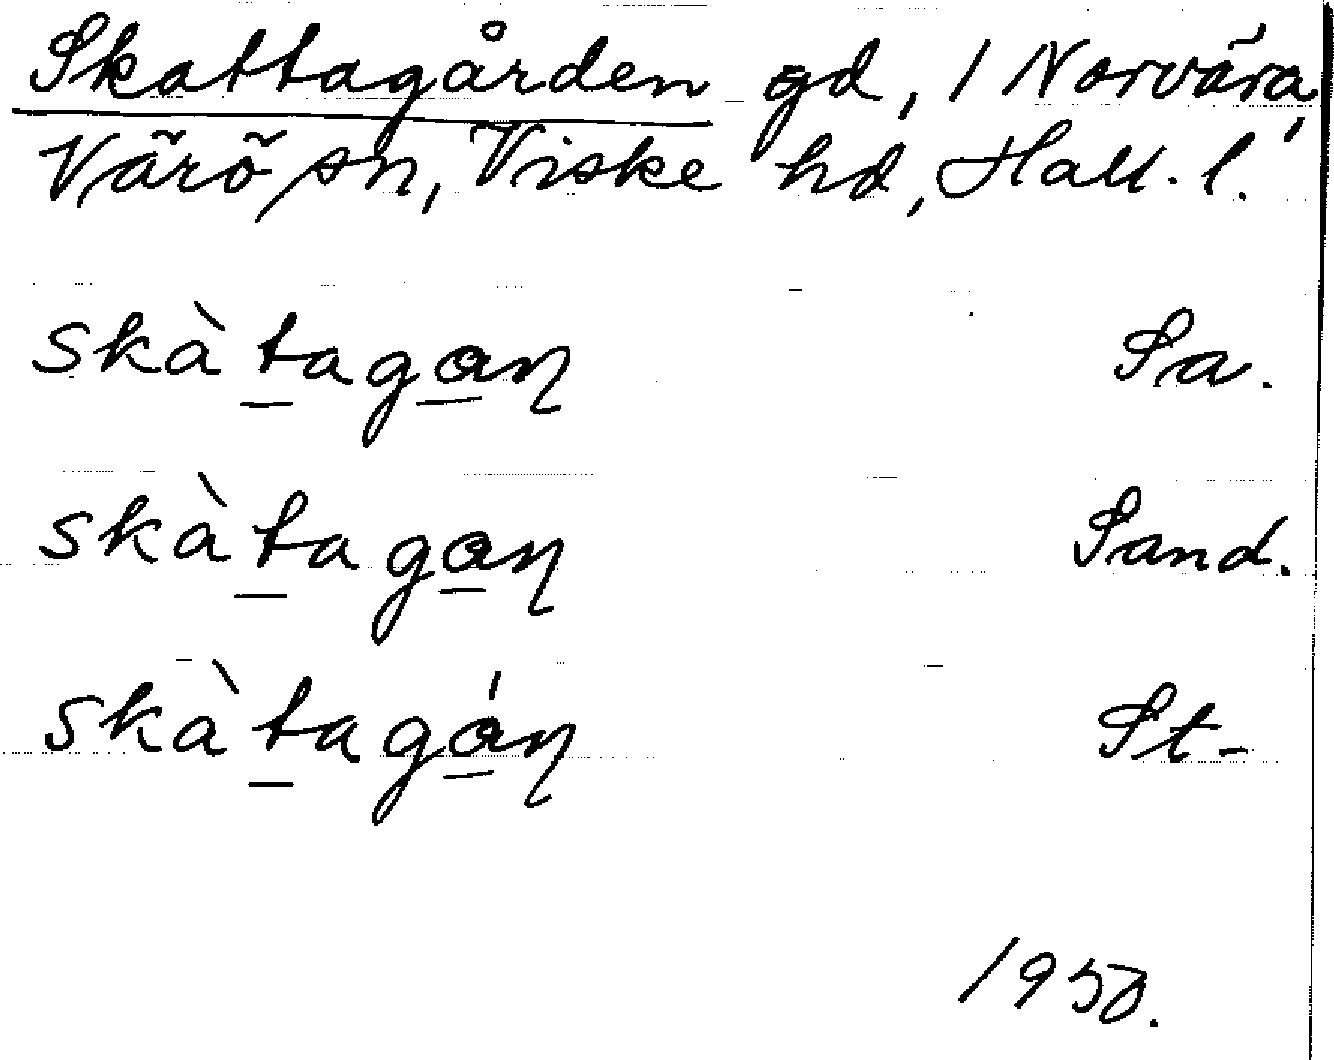 Skattagården gd, 1 Norvära,
Värö sn, Viske hd, Hall. l.
skàtagaɳ Sa.
skàtagaɳ Sand.
skàtagáɳ St-